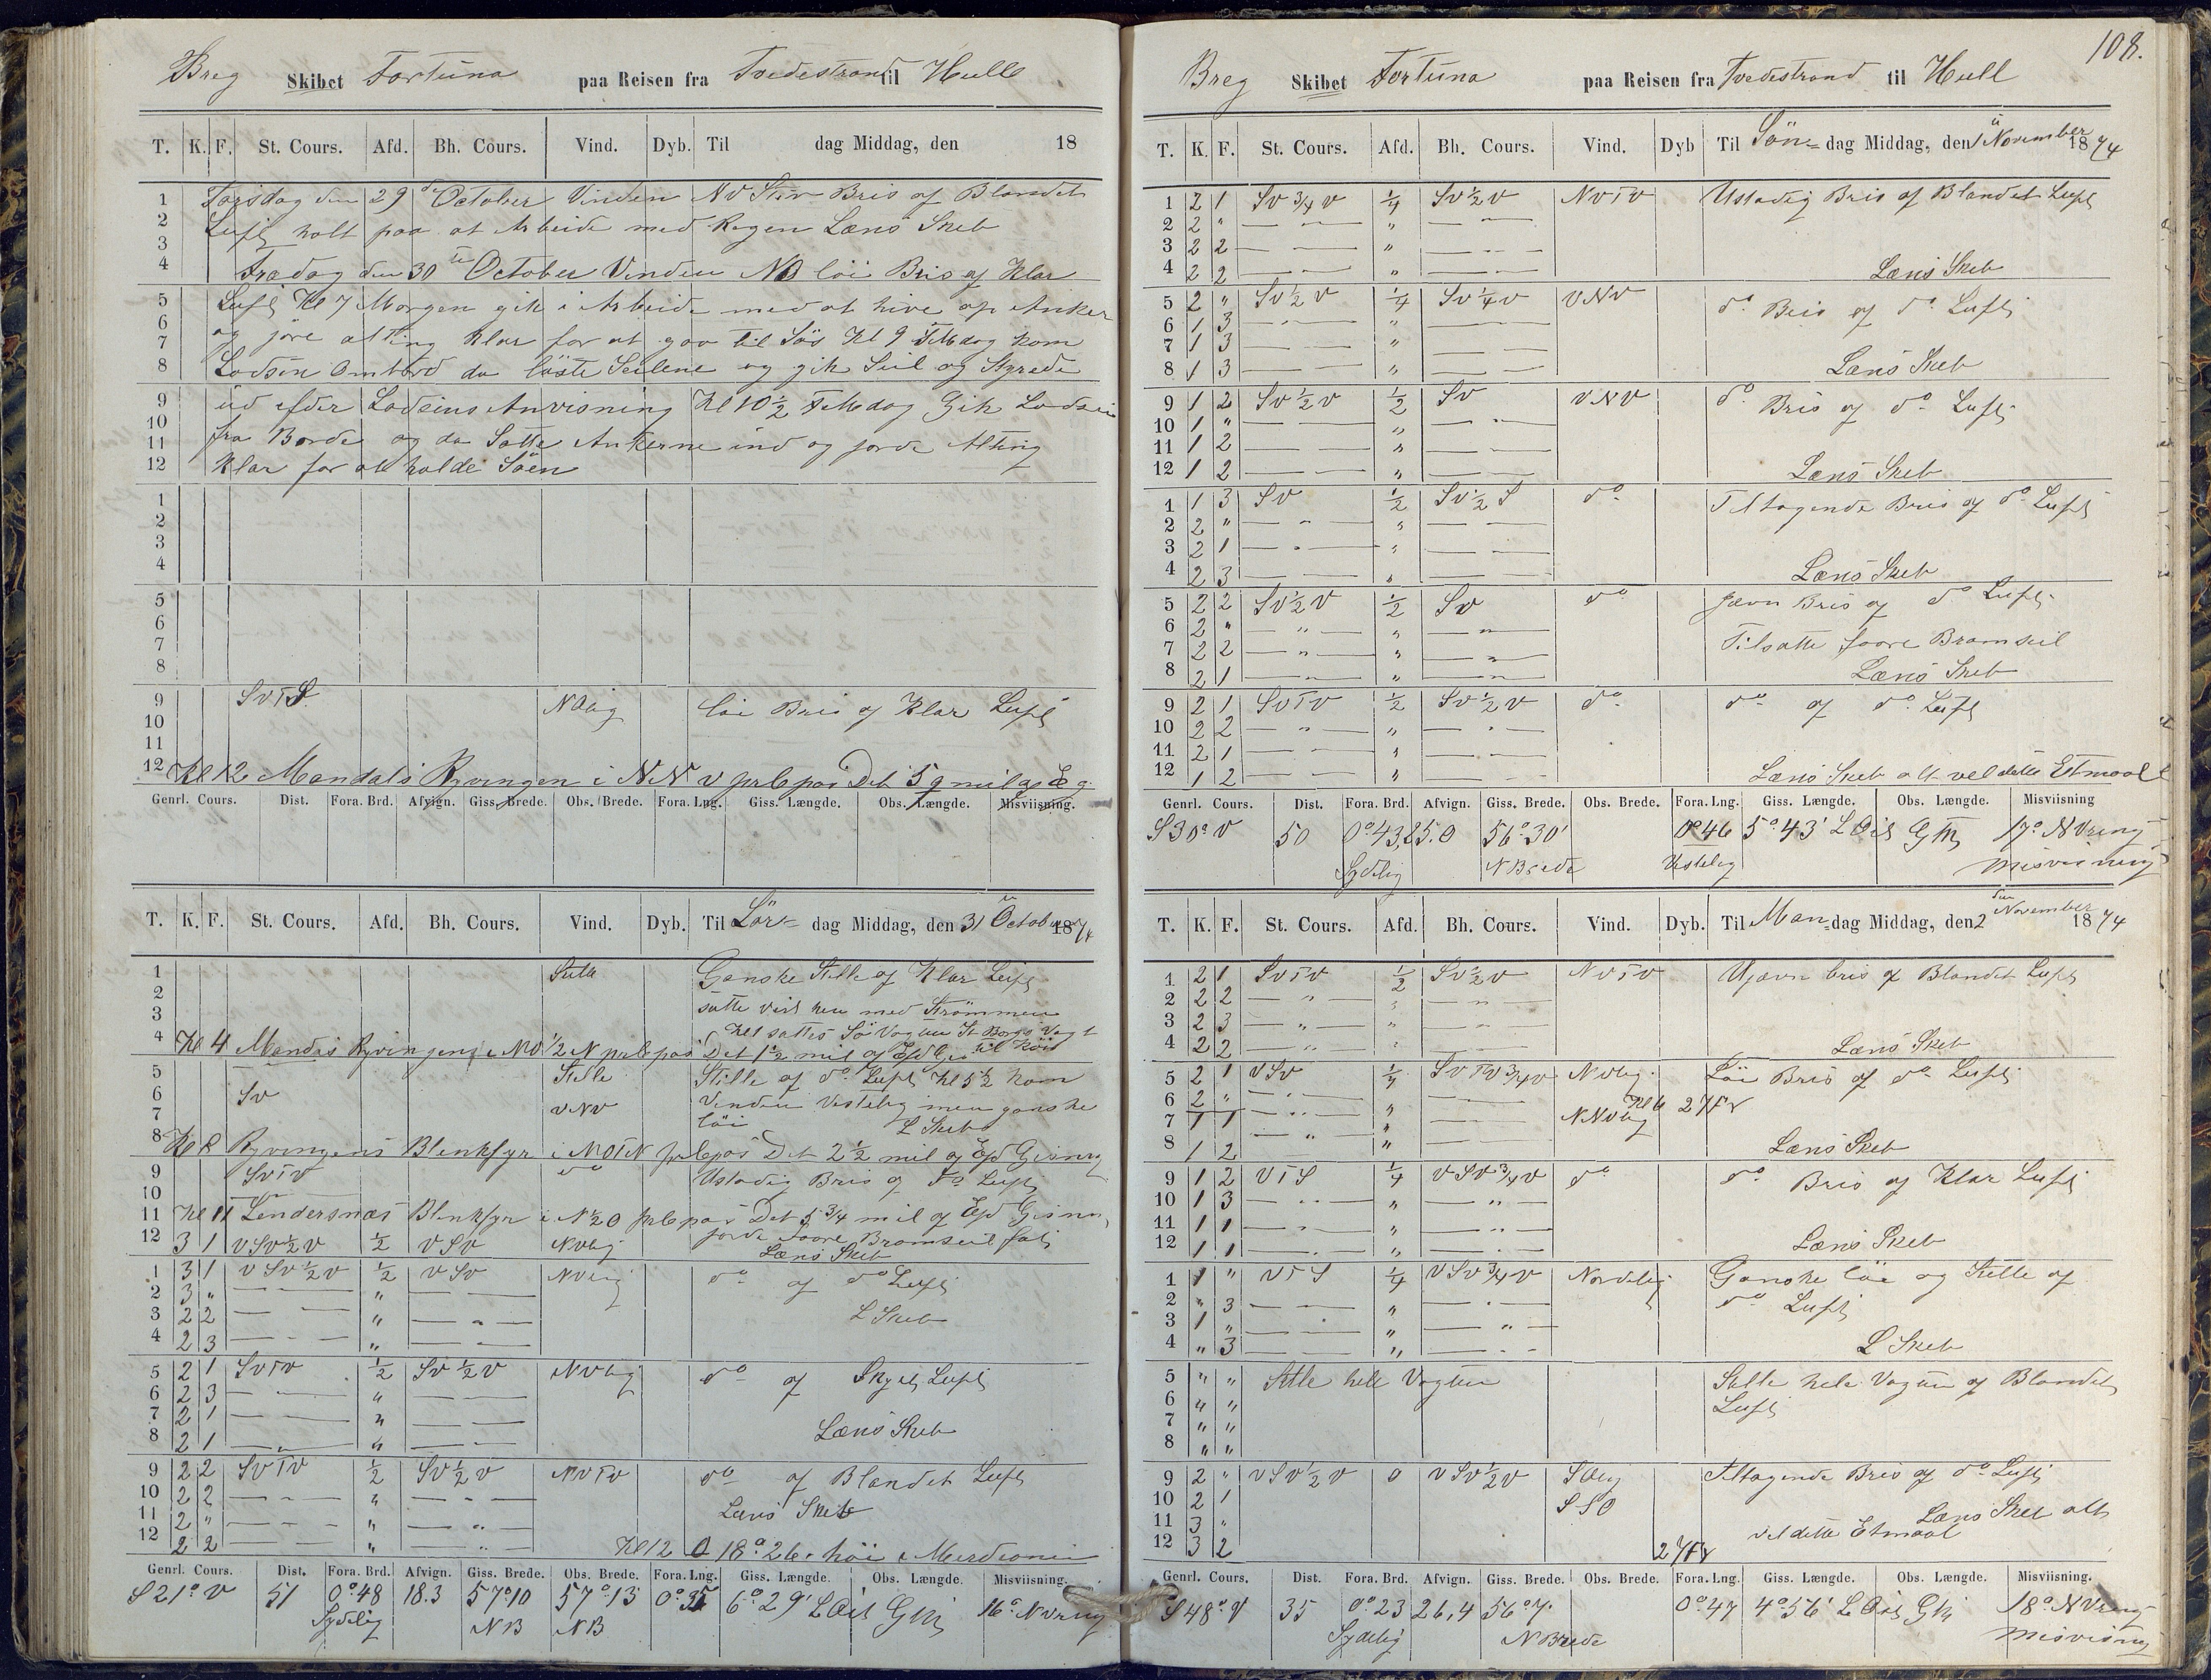 Breg Skibet Fortuna paa Reisen fra Tvedestrand til Hull
T. K. F. St. Cours. Afd. Bh. Cours. Vind. Dyb. Til dag Middag, den 18
1 Torsdag den 29de October Vinden NV Stiv Bris og Blandet
2 Luft holt paa at Arbeide med Ragen Læns Skeb
3
4 Fradag den 30te October Vinden NO löi Bris og Klar
5 Luft Kl 7 Morgen gik i Arbeide med at hive op Anker
6 og jöre alting klar for at gaa til Sös Kl 9 FMdag kom
7
8 Lodsen Ombord da löste Seilene og gik Seil og Styrede
9 ud efder Lodsins Anvisning Kl 10½ FMdag Gik Lodsin
10 fra Borde og da Satte Ankerne ind og jorde Alting
11
12 Klar for at holde Söen
1
2
3
4
5
6
7
8
9 SVTS NOlig löi Bris og Klar Luft
10
11
12 Kl 12 Mandals Ryvingen i NNV prkpas Det 5 q mil
Genrl. Cours. Dist. Fora. Brd. Afvign. Giss. Brede. Obs. Brede. Fora. Lng. Giss. Længde. Obs. Længde. Misviisning.
T. K. F. St. Cours. Afd. Bh. Cours. Vind. Dyb. Til Lör- dag Middag, den 31te October 1874
1 Stille Ganske Stille og Klar Luft
2 satte vest hen med Strömmen
3 Kl 1 sattes Sö Vagten St Borgs Vagt
4 Kl 4 Mandals Ryvingens i NO½N prkpas Det 1½ mil og Efd til Köis
5 Stille Stille og do Luft Kl 5½ kom
6 SV Vinden Vestelig men ganske
7 VNV löi L Skeb
8 Kl 8 Ryvingens Blinkfyr i NOTN prkpas Det 2½ mil og Efd Gisning
9 SVTV do Ustadig Bris og do Luft
10
11 Kl 11 Lindersnæs Blinkfyr i N½O prkpas Det 5¾ mil og Efd Gisn
12 3 1 VSV½V ½ VSV NVlig jorde Foore Bramseil fast
Læns Skeb
1 3 1 VSV½V ½ VSV NVlig do og do Luft
2 3 " — " —
3 2 2 — " — L Skeb
4 2 3 — " —
5 2 1 SVTV ½ SV½V NVlig do og Skyet Luft
6 2 3 — " —
7 2 1 — " — Læns Skeb
8 2 1 — " —
9 2 2 SVTV ½ SV½V NVTV do og Blandet Luft
10 2 2 — " —
11 2 " — " — Læns Skeb
12 2 2 — " — Kl 12 O 18°26' höi i Meridianen
Genrl. Cours. Dist. Fora. Brd. Afvign. Giss. Brede. Obs. Brede. Fora. Lng. Giss. Længde. Obs. Længde. Misviisning.
S 21° V 51 0°48 18.3 57°10 57°13 0°35 6°29' L Öst GM 16° NVring
Sydelig NB NB
108.
Breg Skibet Fortuna paa Reisen fra Tvedestrand til Hull
T. K. F. St. Cours. Afd. Bh. Cours. Vind. Dyb Til Sön- dag Middag, den 1te November 1874
1 2 1 SV¾V ¼ SV½V NVTV Ustadig Bris og Blandet Luft
2 2 " — " —
3 2 2 — " —
4 2 2 — " — Læns Skeb
5 2 " SV½V ¼ SV¼V VNV do Bris og do Luft
6 1 3 — " —
7 1 3 — " —
8 1 3 — " — Læns Skeb
9 1 2 SV½V ½ SV VNV do Bris og do Luft
10 1 " — " —
11 1 2 — " —
12 1 2 — " — Læns Skeb
1 1 3 SV ½ SV½S do Tiltagende Bris og do Luft
2 2 " — " —
3 2 1 — " —
4 2 3 — " — Læns Skeb
5 2 2 SV½V ½ SV do Jævn Bris og do Luft
6 2 " — " — Tilsatte Foore Bramseil
7 2 2 — " —
8 2 1 — " — Læns Skeb
9 2 1 SVTV ½ SV½V do do og do Luft
10 2 2 — " —
11 2 1 — " —
12 1 2 — " — Læns Skeb alt vel dette Etmaal
Genrl. Cours. Dist. Fora. Brd. Afvign. Giss. Brede. Obs. Brede. Fora. Lng. Giss. Længde. Obs. Længde. Misviisning
S 30° V 50 0°43, 25.0 56°30' 0°46 5°43' L Öst GM 17° NVring
Sydelig N Brede Vestelig Misvisning
T. K. F. St. Cours. Afd. Bh. Cours. Vind. Dyb. Til Man- dag Middag, den 2den November 1874
1 2 1 SVTV ½ SV½V NVTV Ujævn bris og Blandet Luft
2 2 2 — " —
3 2 3 — " —
4 2 2 — " — Læns Skeb
5 2 1 VSV ¼ SVTV¾V NVlig Löi Bris og do Luft
6 2 " — " — Kl 6 27Fv
7 1 1 — " — NNVlig
8 1 2 — " — Læns Skeb
9 1 2 VTS ¼ VSV¾V do do Bris og Klar Luft
10 1 3 — " —
11 1 1 — " —
12 1 1 — " — Læns Skeb
1 1 " VTS ¼ VSV¾V Nordelig Ganske löi og Stille og
2 " 3 — " — do Luft
3 1 " — " —
4 " 3 — " — L Skeb
5 " " Stille hele Vagten Stille hele Vagten og Blandet
6 " " Luft
7 " "
8 " "
9 2 " VSV½V 0 VSV½V SOlig Tiltagende Bris og do Luft
10 2 1 SSO
11 3 " Læns Skeb alt
12 3 2 27Fv vel dette Etmaal
Genrl. Cours. Dist. Fora. Brd. Afvign. Giss. Brede. Obs. Brede. Fora. Lng. Giss. Længde. Obs. Længde. Misviisning.
S 48° V 35 0°23 26,4 56°7' 0°47 4°56' L Öst GM 18° NVring
Sydelig N Brede Misvisning